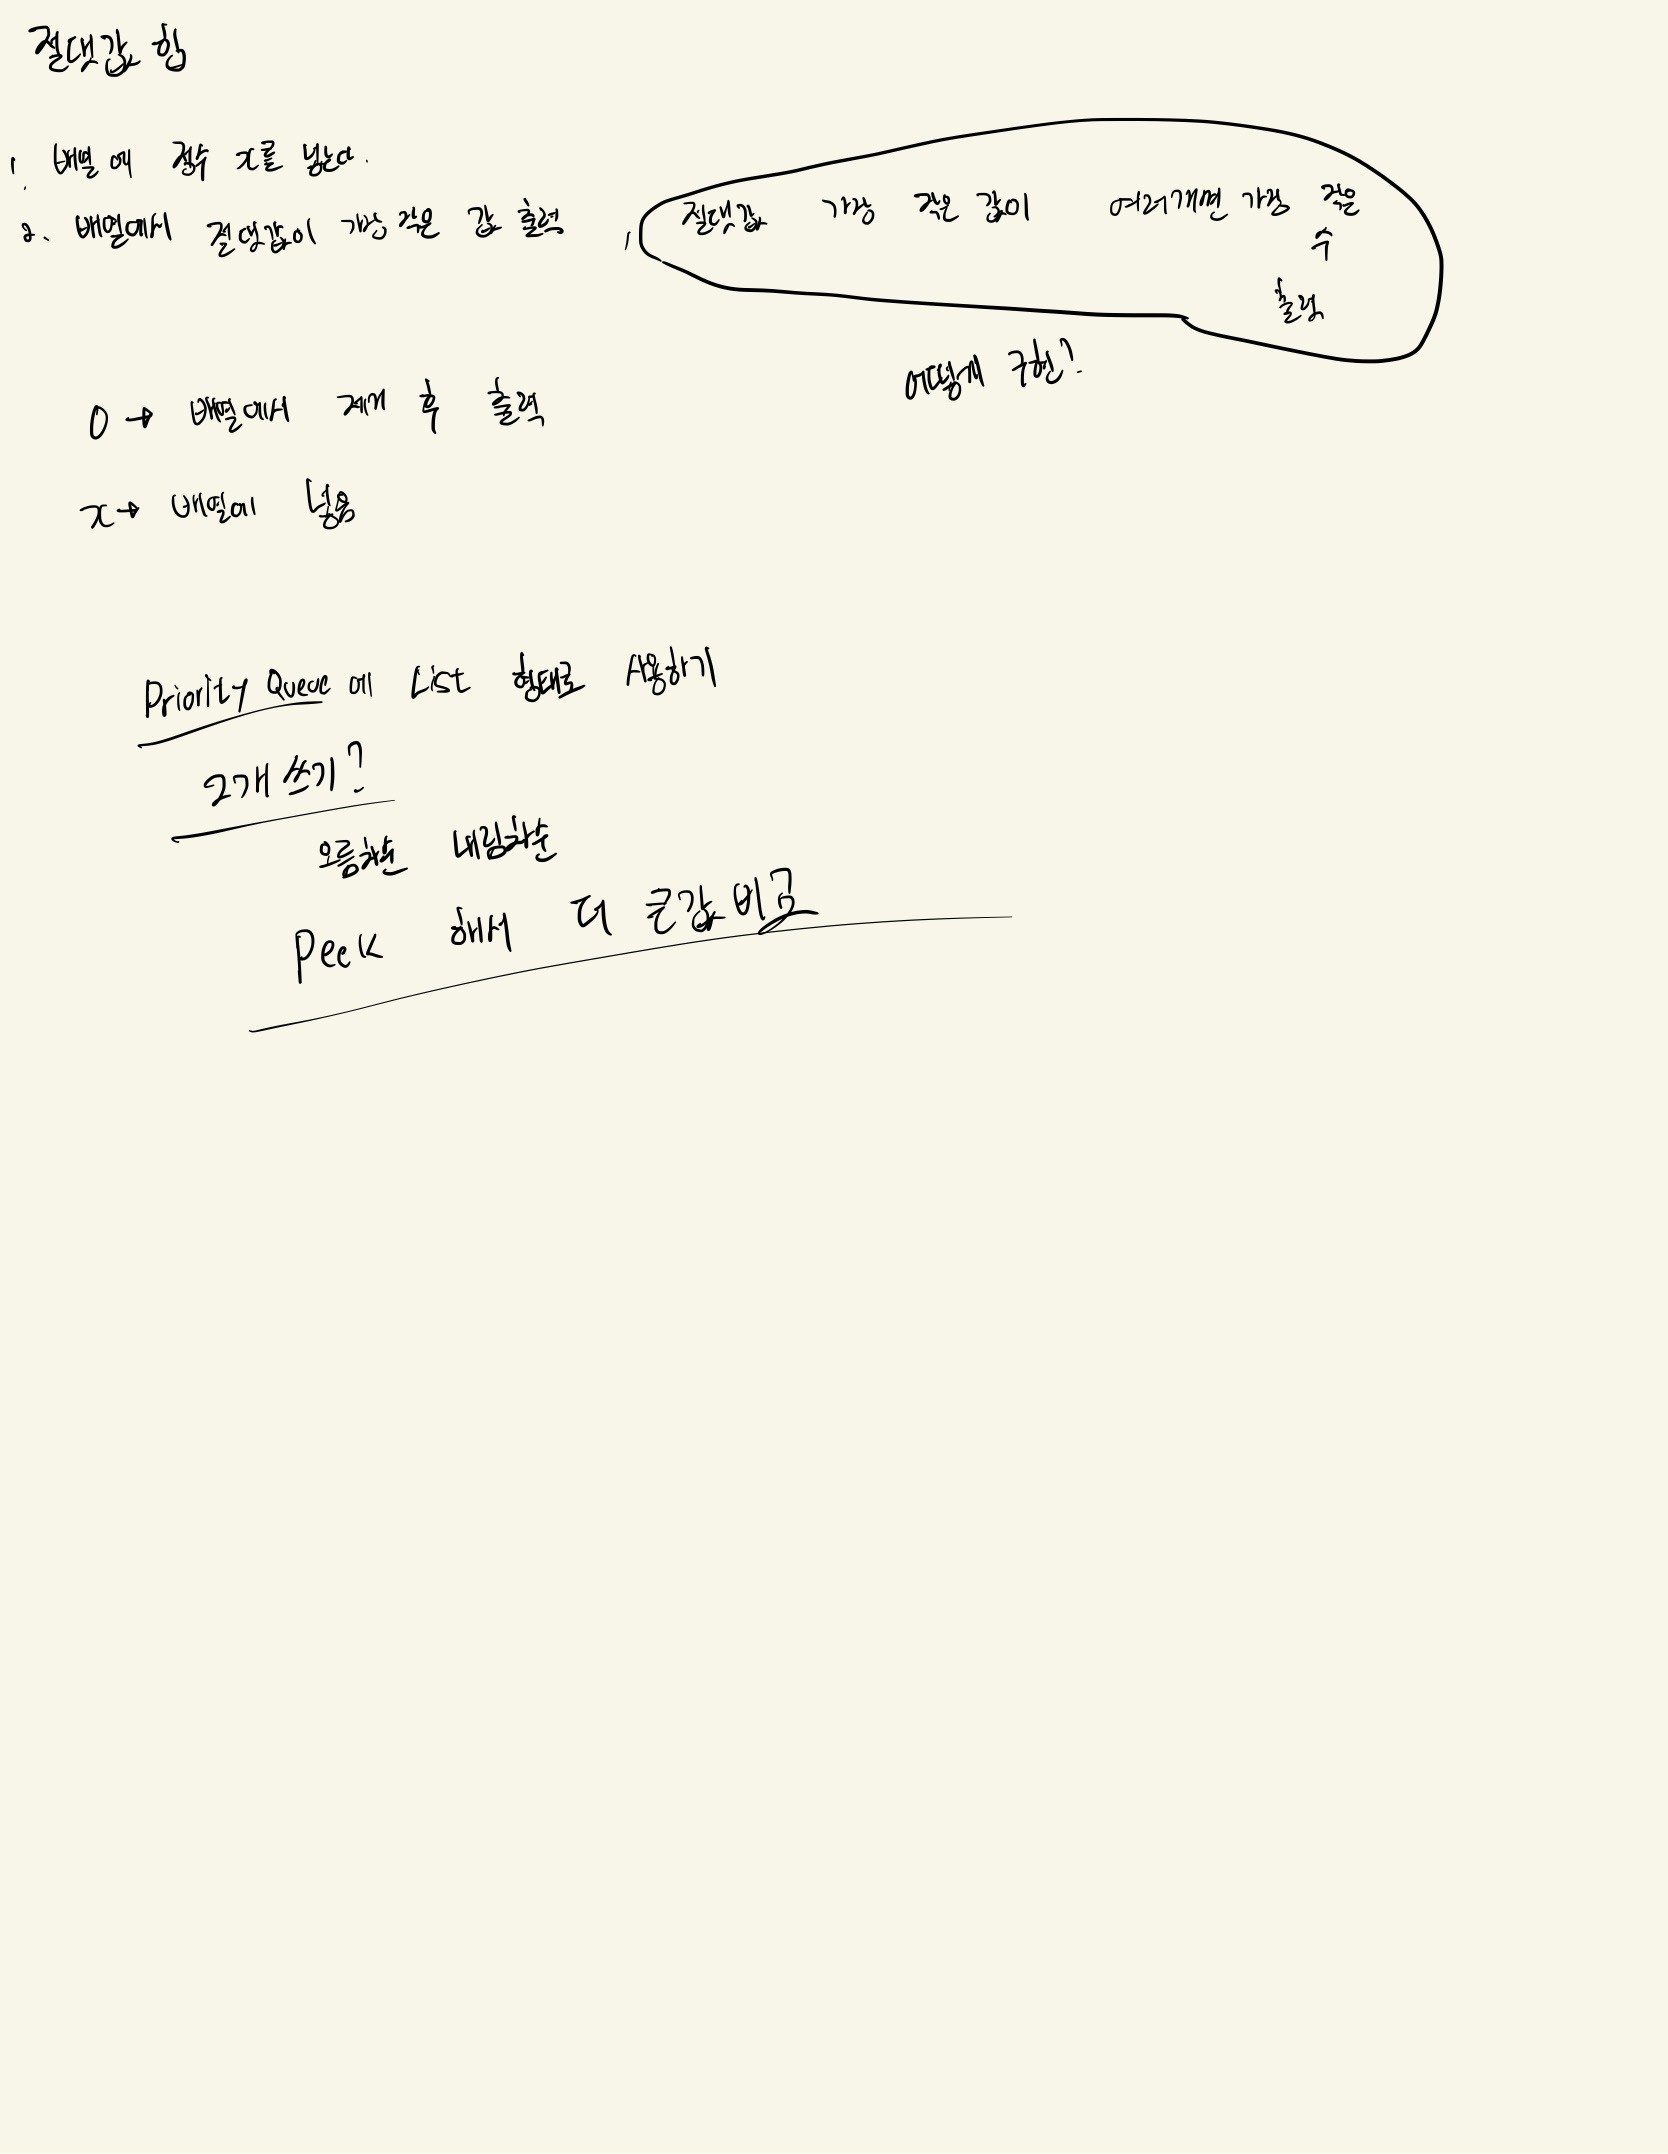 절댓값 힙
1. 배열에 정수 x를 넣는다.
2. 배열에서 절댓값이 가장 작은 값 출력,
절댓값 가장 작은 값이 여러개면 가장 작은
수
출력
어떻게 구현?
0 → 배열에서 제거 후 출력
x → 배열에 넣음
Priority Queue에 List 형태로 사용하기
2개 쓰기?
오름차순 내림차순
Peek 해서 더 큰값 비교